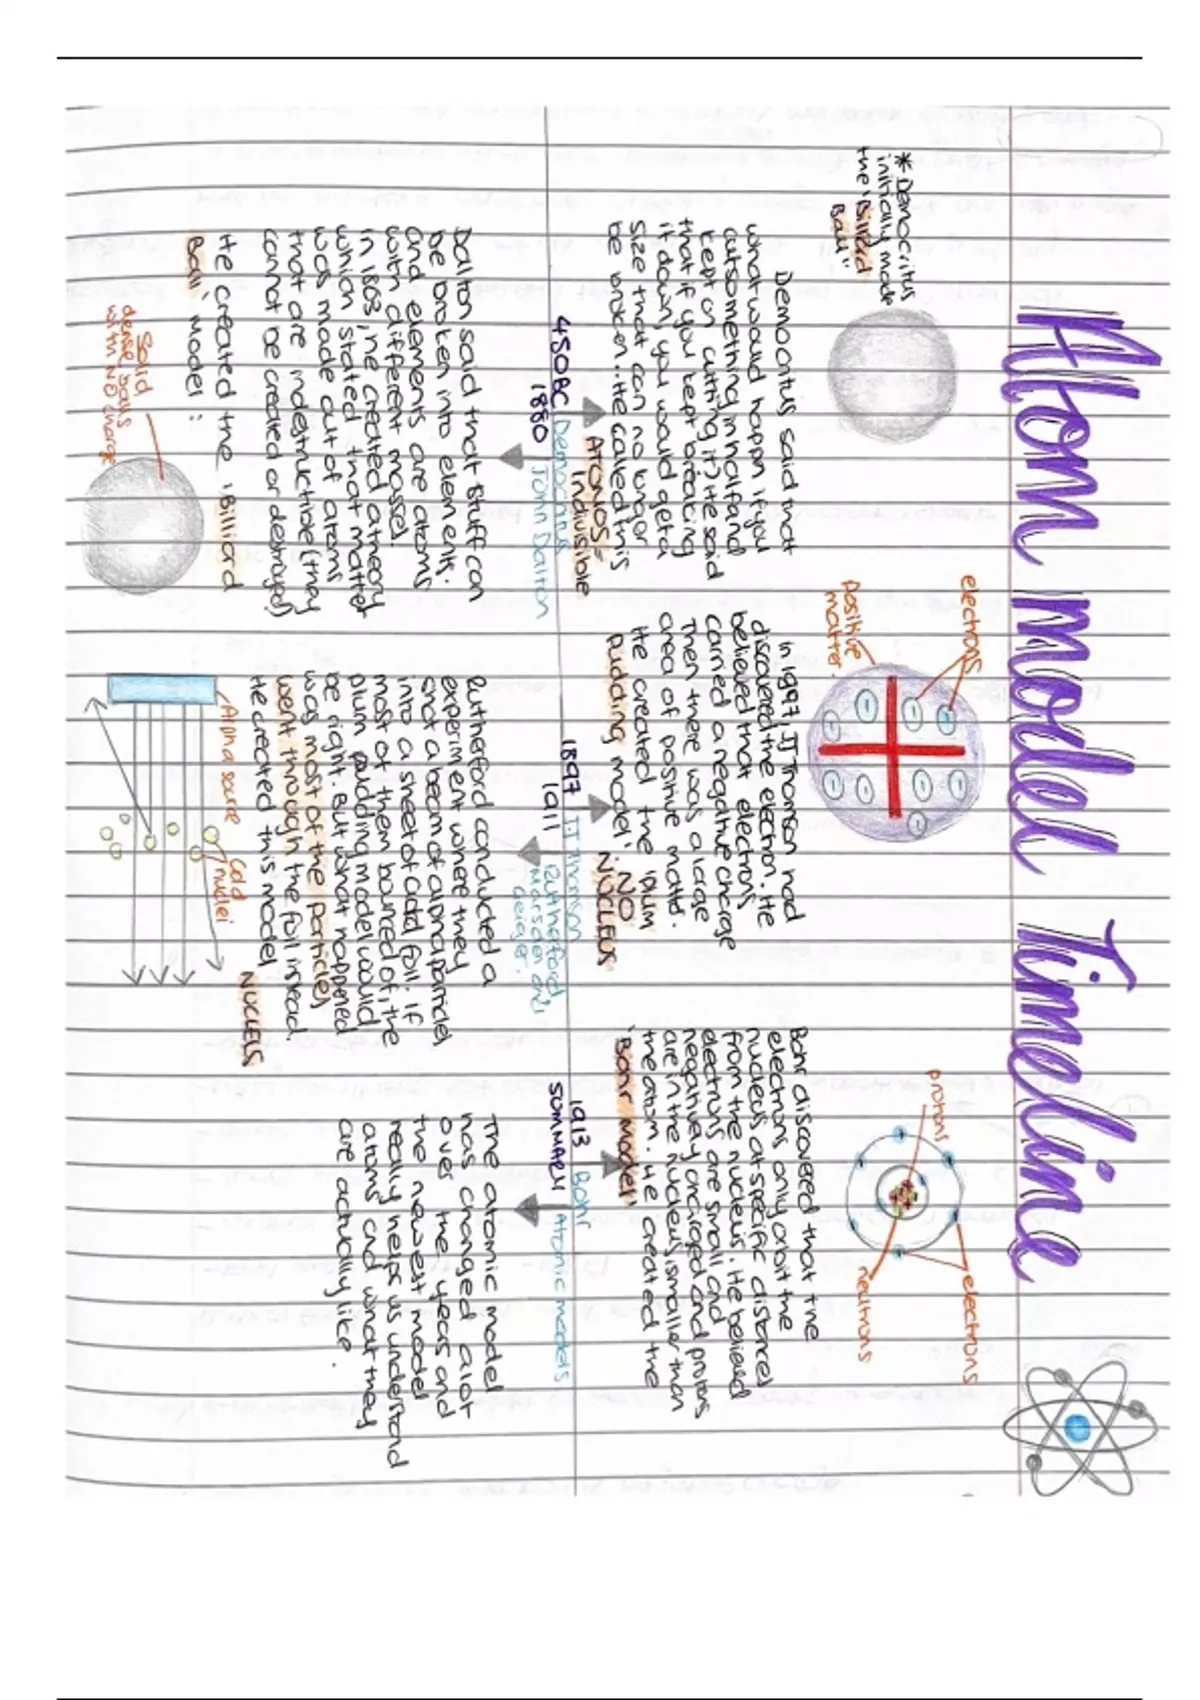 Atom model Timeline
*Democritus
initially made
the 'Billiard
Ball''
Democritus said that
what would happn if you
cut something in half and
kept on cutting it? He said
that if you kept breacing
it down, you would get a
size that can no longer
be broken.. He called this
ATOMOS =
Indivisible
450BC Democritus
1880 John Dalton
Dalton said that stuff can
be broken into elements.
and elements are atoms
with different masses.
in 1803, he created a theory
which stated that matter
was made out of atoms
that are indestructible (they
cannot be created or destryed)
He created the 'Billiard
Ball' model :
Solid
dense balls
with NO charge
electrons
Positive
matter.
in 1997, JJ Thomson had
discovered the electron. He
believed that electrons
carried a negative charge
Then there was a large
area of positive mattd.
He created the 'plum
pudding model'. NO
NUCLEUS
1897 JJ Thomson
1911 Rutherford,
Marsden and
Geiger.
Rutherford conducted a
experiment where they
shot a beam of alpha particles
into a sheet of gold foil. If
most of them bounced of, the
plum pudding model would
be right. But what happened
was most of the particles
went through the foil instead.
He created this model
NUCLEUS
Alpha source
Gold
nuclei
protons
electrons
neutrons
Bohr discovered that the
electrons only orbit the
nucleus at specific distances
from the nucleus. He believed
electrons are small and
negatively charged and protons
are in the nucleus is smaller than
the atom. He created the
'Bohr model'
1913 Bohr
SUMMARY Atomic models
The atomic model
has changed alot
over the years and
the newest model
really helps us understand
atoms and what they
are actually like.